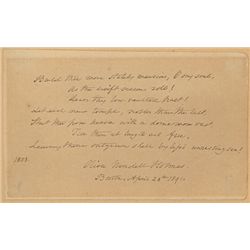 Build thee more stately mansions, O my soul,
As the swift seasons roll!
Leave thy low-vaulted past!
Let each new temple, nobler than the last,
Shut thee from heaven with a dome more vast,
Till thou at length art free,
Leaving thine outgrown shell by life's unresting sea!
Oliver Wendell Holmes.
Boston, April 20th 1891.